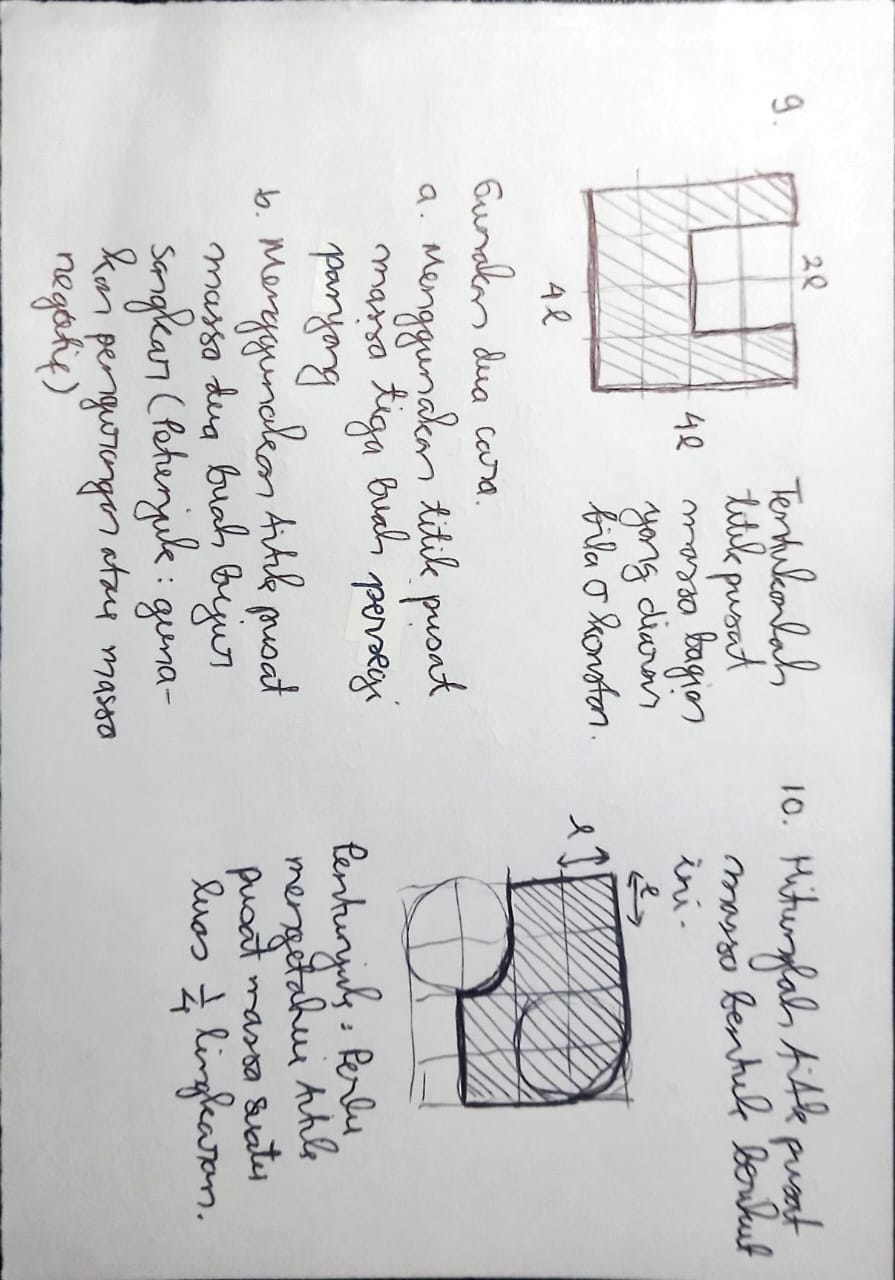 9.
2l
4l
4l
Tentukanlah
titik pusat
massa bagian
yang diarsir
bila σ konstan.
Gunakan dua cara.
a. Menggunakan titik pusat
massa tiga buah persegi
panjang
b. Menggunakan titik pusat
massa dua buah bujur
sangkar (Petunjuk : guna-
kan pengurangan atau massa
negatif)
10. Hitunglah titik pusat
massa bentuk berikut
ini.
l
l
Pentunjuk : Perlu
mengetahui titik
pusat massa suatu
luas 1/4 lingkaran.